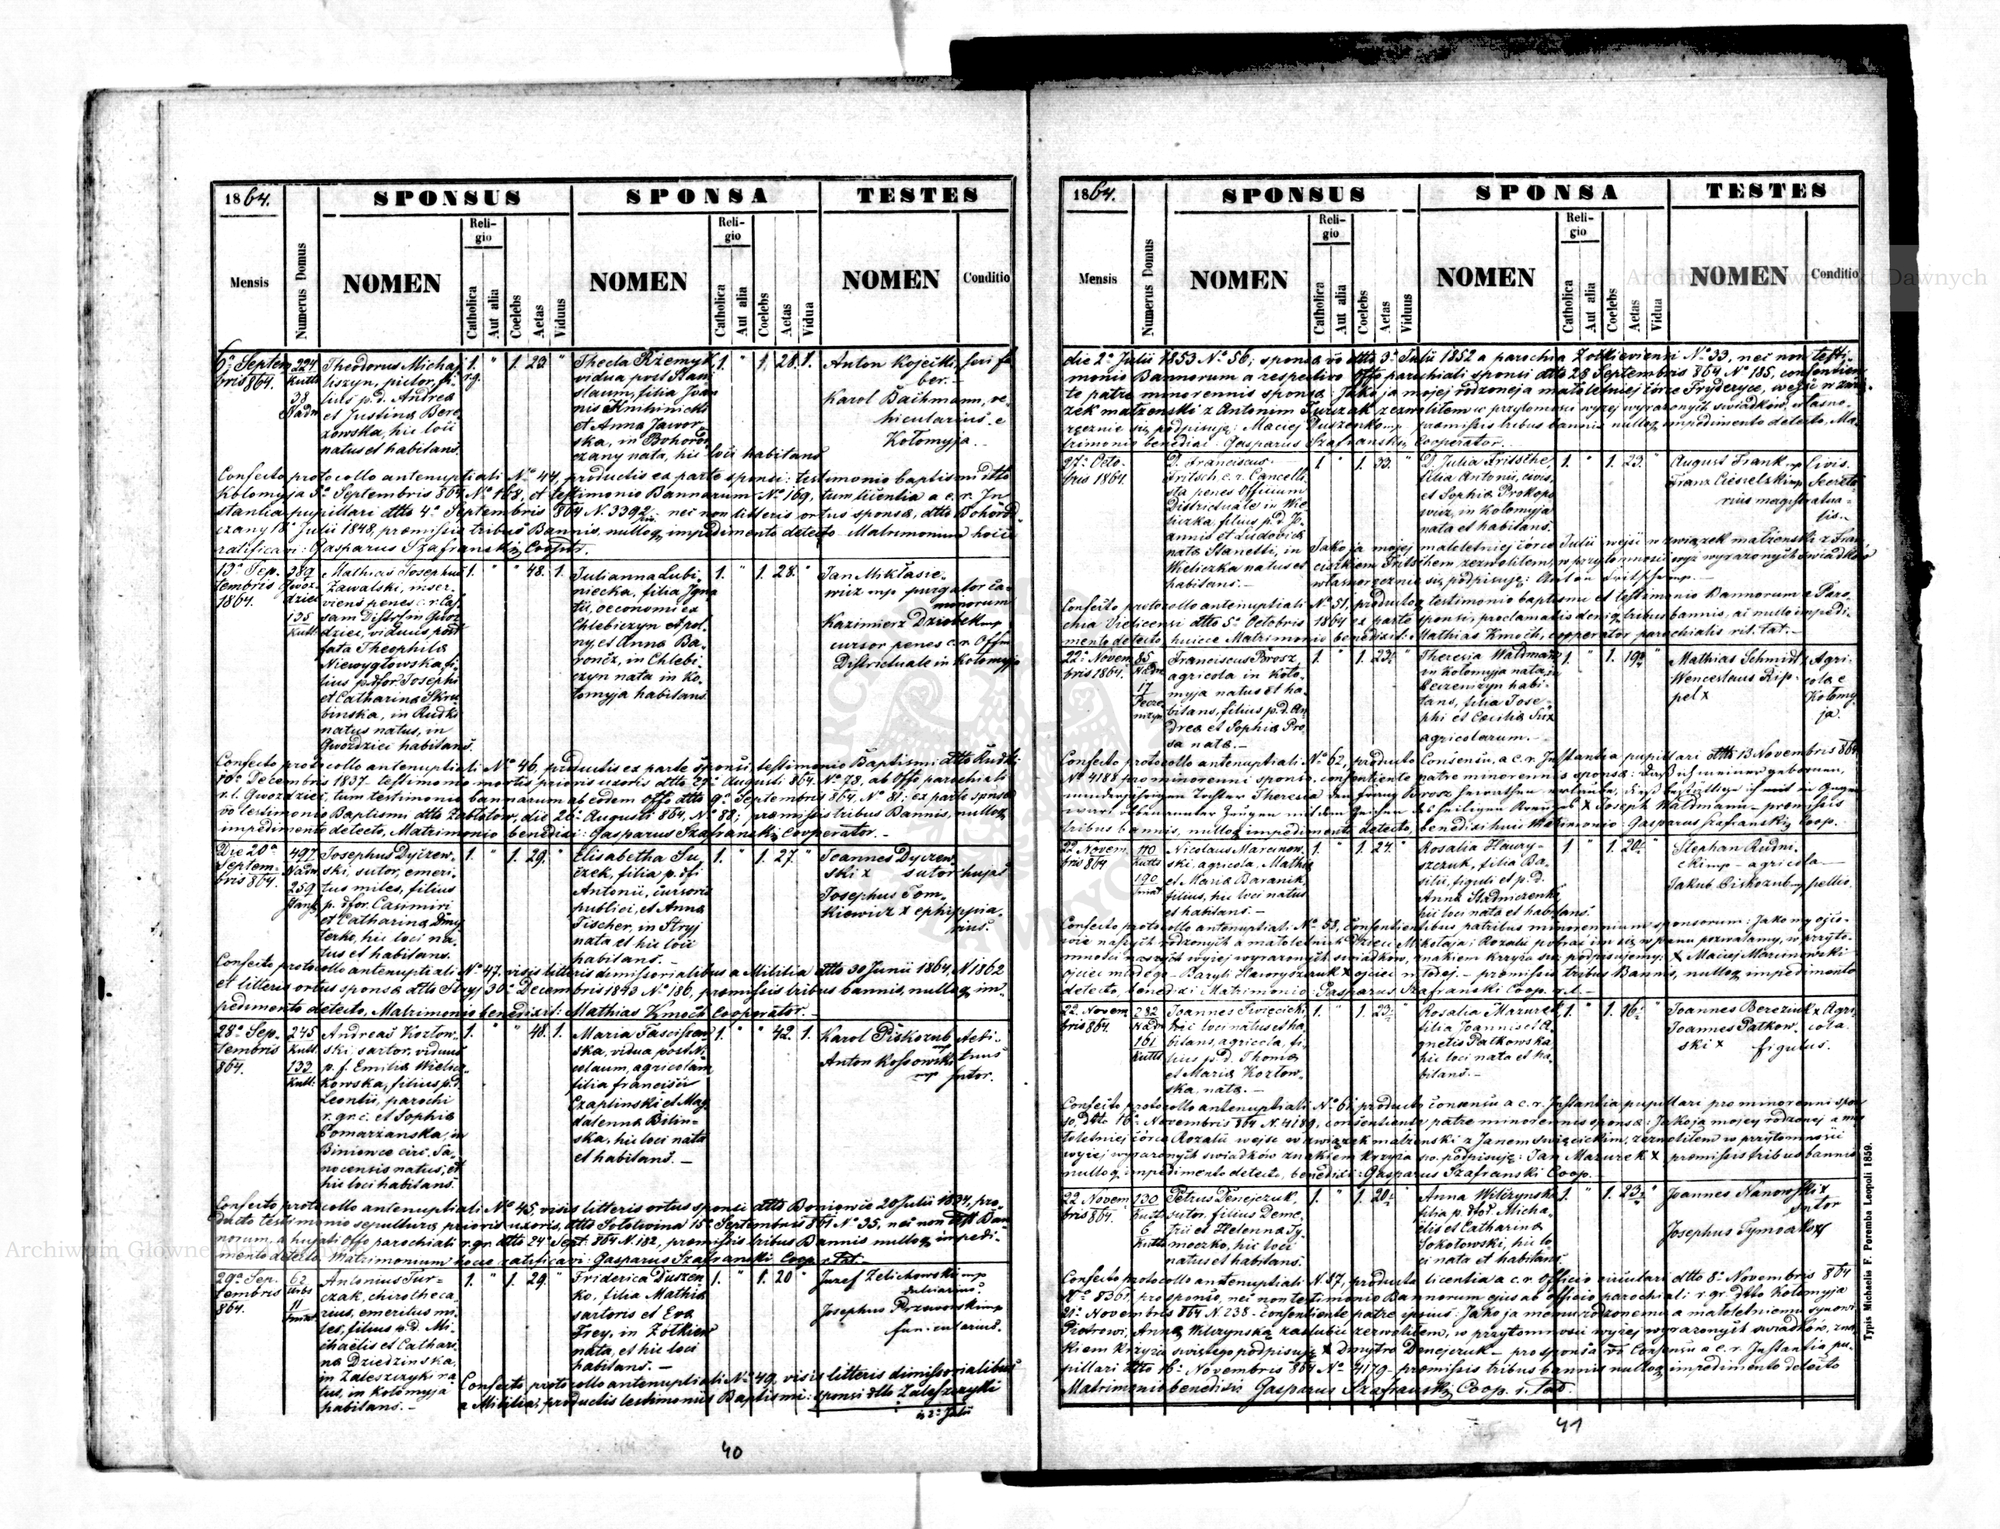 1864.
SPONSUS
SPONSA
TESTES
Mensis
Numerus Domus
NOMEN
Religio
Catholica
Aut alia
Coelebs
Aetas
Viduus
NOMEN
Religio
Catholica
Aut alia
Coelebs
Aetas
Vidua
NOMEN
Conditio
6a Septembris 864.
224
38
Theodorus Michaj
liszyn, pictor, fi
lius p.d. Andrea
et Justina Bere
zowska, hic loci
natus et habitans.
1. 1. 23.
Thecla Rzemyk
vidua post Stani
slaum, filia Joan
nis Kmiwnicki
et Anna Jawor
ska, in Bohorod
czany nata, hic loci habitans
1. 1. 28. 1.
Anton Kojeitti, fori fa
ber.
Karol Bachmann, ve
hicularius e
Kołomyja.
Confecto protocollo antenuptiali No 44, productis ex parte sponsi: testimonio baptismi dtto
Kolomyja 3a Septembris 864 No 168, et testimonio Bannorum No 169, tum licentia a c.r. In
stantia pupillari dtto 4a Septembris 864 N. 3392, nec non litteris ortus sponsa, dtto Bohorod
czany 18 Julii 1848, premissis tribus Bannis, nulloq impedimento detecto Matrimonium hocce
ratificavi: Gasparus Szafranski Cooptr.
13a Sep
tembris
1864.
289
135
Mathias Josephus
Zawalski, inser
viens penes c.r. Cas
sam Distr. in Gwoz
dziec, viduus, post
fata Theophila
Niewygłowska, fi
lius p.dfor. Josephi
et Catharina Skru
binska, in Rudki
natus natus, in
Gwozdziec habitans.
1. 48. 1.
Julianna Lubi
niecka, filia Igna
tii, oeconomi ex
Chlebiczyn Apol
ny, et Anna Ba
roncz, in Chlebi
czyn nata in Ko
łomyja habitans.
1. 1. 28.
Jan Mikłasie
wicz mp purgator ca
monorum
Kazimierz Dziobek mp
cursor penes c.r. Offm
Districtuale in Kołomyja
Confecto protocollo antenuptiali No 46, productis ex parte sponsi, testimonio Baptismi dtto Rudki
10a Decembris 1837 testimonio mortis prioris uxoris dtto 29a Augusti 864 No 73, ab Offo parochiali
r.l. Gwozdziec, tum testimonio bannorum ab eodem offo dtto 9a Septembris 864, No 81; ex parte sponsa
vo testimonio Baptismi dtto Zabłotow, die 26a Augusti 864, No 88; premissis tribus Bannis, nulloq
impedimento detecto, Matrimonio benedixi: Gasparus Szafranski Cooperator.
Die 20a
Septem
bris 864.
497
259
Josephus Dyczew
ski, sutor, emeri
tus miles, filius
p. dfor. Casimiri
et Catharina Dmy
terko, hic loci na
tus et habitans.
1. 1. 29.
Elisabetha Su
czek, filia p. dfi
Antonii, cursoris
publici, et Anna
Fischer, in Stryj
nata et hic loci
habitans.
1. 1. 27.
Joannes Dyczew
ski x sutor hujas
Josephus Tom
kiewicz x ephippia
rius.
Confecto protocollo antenuptiali No 47, visis litteris dimissorialibus a Militia dtto 30 Junii 1864, N 1862
et litteris ortus sponsa dtto Stryj 30a Decembris 1843 No 186, premissis tribus bannis, nulloq im
pedimento detecto, Matrimonio benedixit: Mathias Kmoch Cooperator.
28a Sep
tembris
864.
245
132
Andreas Kozłow
ski, sartor, viduus
p.f. Emilia Wielu
kowska, filius p.d.
Leontii, parochi
r.gr.c. et Sophia
Pomarzanska, in
Binience circ. Sa
nocensis natus, et
hic loci habitans.
1. 48. 1.
Maria Tasciszew
ska, vidua, post Ni
colaum, agricolam
filia Francisci
Czaplinski et Mag
dalenna Bilin
ska, hic loci nata
et habitans.
1. 42. 1.
Karol Piskozub mp
Anton Kossowski mp
sutor.
Confecto protocollo antenuptiali No 45, visis litteris ortus sponsi dtto Boniewice 20 Julii 1834, pro
ducto testimonio sepultura prioris uxoris, dtto Sołotwina 15a Septembris 861 No 35, nec non dtto Ban
norum, a hujati Offo parochiali r.gr. dtto 24 Sept. 864 N. 182, premissis tribus Bannis nulloq impedi
mento detecto, Matrimonium hocce ratificavi: Gasparus Szafranski Coop. r. lat.
29a Sep
tembris
864.
62
11
Antonius Tur
czak, chirotheca
rius, emeritus mi
les, filius p.d. Mi
chaelis et Cathari
na Dziedzinska,
in Zaleszczyki na
tus, in Kołomyja
habitans.
1. 1. 29.
Friderica Duszen
ko, filia Mathia
sartoris et Eva
Frey, in Zółkiew
nata, et hic loci
habitans.
1. 1. 20
Juzef Zelichowski mp
Josephus Przeworski mp
funicularius.
Confecto protocollo antenuptiali No 49, visis litteris dimissorialibus
a Militia, productis testimoniis Baptismi: sponsi dtto Zaleszczyki
40
1864.
SPONSUS
SPONSA
TESTES
Mensis
Numerus Domus
NOMEN
Religio
Catholica
Aut alia
Coelebs
Aetas
Viduus
NOMEN
Religio
Catholica
Aut alia
Coelebs
Aetas
Vidua
NOMEN
Conditio
die 2a Julii 1853 No 56; sponsa vo dtto 3a Julii 1852 a parochia Zolkieviensi No 33, nec non testi
monio Bannorum a respectivo Offo parochiali sponsi dtto 28 Septembris 864 No 185, consentien
te patre minorennis sponsa: Jako ja mojej rodzonej a małoletniej córce Fryderyce, wejść w zwią
zek małżenski z Antonim Turczak zezwoliłem w przytomości wyzej wyrażonych świadków, własno
ręcznie się podpisuję: Maciej Duszenko mp premissis tribus bannis nulloq impedimento detecto, Ma
trimonio benedixi: Gasparus Szafranski, Cooperator.
27a Octo
bris 1864.
D. Franciscus
Fritsch c.r. Cancelli
sta penes Officium
Districtuale in Wie
liczka, filius p.d. Jo
annis et Ludovica
nata Stanetti, in
Wieliczka natus et
habitans.
1. 1. 33.
D. Julia Fritsche,
filia Antonii, civis,
et Sophia Prokopo
wicz, in Kołomyja
nata et habitans.
1. 1. 23.
August Frank mp Civis.
Franz Ciesielski mp Secreta
rius magistratua
lis.
Jako ja mojej małoletniej córce Julii wejść w związek małżenski z Fran
ciszkiem Fritschem, zezwoliłem, w przytomności wyżej wyrażonych świadków
własnoręcznie się podpisuję: Anton Fritsche mp.
Confecto protocollo antenuptiali No 51, productoq testimonio baptismi et testimonio Bannorum e Paro
chia Vielicensi dtto 5a Octobris 1864 ex parte sponsi, proclamatis deniq tribus bannis, ac nullo impedi
mento detecto, huicce Matrimonio benedixit: Mathias Kmoch, cooperator parochialis rit. lat.
22a Novem
bris 1864.
85
17
Franciscus Brosz,
agricola in Koło
myja natus et ha
bitans, filius p.d. An
drea et Sophia Pre
sa nata.
1. 1. 23
Theresia Waldmann
in Kołomyja nata, in
Peczenizyn habi
tans, filia Jose
phi et Cecilia Fux
agricolarum.
1. 1. 19
Mathias Schmidt x Agri
Wenceslaus Rip cola e
pel x Kołomy
ja.
Confecto protocollo antenuptiali No 62, producto Consensu, a c.r. Instantia pupillari dtto 13 Novembris 864
No 4188 pro minorenni sponso, consentiente patre minorennis sponsa: daß ich meiner gebornen,
minderjährigen Tochter Theresia den Franz Brosz heirathen erlaubte, dieß bestättige ich mit in Gegen
wart obbenannter Zeugen mit dem Zeichen des heiligen Kreuzes x Joseph Waldmann premissis
tribus bannis, nulloq impedimento detecto, benedixi huic Matrimonio: Gasparus Szafranski Coop.
22 Novem
bris 864
110
190
Nicolaus Marcinow
ski, agricola, Mathia
et Maria Baranik,
filius, hic loci natus
et habitans.
1. 1. 24.
Rosalia Hawry
szczuk, filia Ba
silii, figuli et p.d.
Anna Stadniczenko
hic loci nata et habitans.
1. 1. 20
Stephan Rudni
cki mp agricola
Jakub Piskozub mp pellio.
Confecto protocollo antenuptiali No 58, consentientibus patribus minorennium sponsorum: Jako my ojco
wie naszych rodzonych a małoletnich dzieci Mikołaja i Rozalii pobrać im się w pana pozwalamy, w przyto
mności naszych wyżej wyrażonych świadków, znakiem krzyża się podpisujemy: x Maciej Marcinowski
ojciec młodego. Bazyli Hawryszczuk x ojciec młodej. premissis tribus Bannis, nulloq impedimento
detecto, benedixi Matrimonio: Gasparus Szafranski Coop. r.l.
22 Novem
bris 864.
282
161
Joannes Swięcicki
hic loci natus et ha
bitans, agricola, fi
lius p.d. Thoma
et Maria Kozłow
ska, nata.
1. 1. 23
Rosalia Mazurek
filia Joannis et A
gnetis Patkowska
hic loci nata et ha
bitans.
1. 1. 16
Joannes Bereziuk x Agri
Joannes Patkow cola.
ski x figulus.
Confecto protocollo antenuptiali No 61, producto consensu a c.r. Instantia pupillari pro minorenni spon
so, dtto 16a Novembris 864 N. 4189, consentiente patre minorennis sponsa: Jako ja mojej rodzonej a ma
łoletniej córce Rozalii wejść w związek małżenski z Janem Swięcickim, zezwoliłem w przytomności
wyżej wyrażonych świadków znakiem krzyża św. podpisuję: Jan Mazurek x premissis tribus bannis
nulloq impedimento detecto, benedixi: Gasparus Szafranski Coop.
22 Novem
bris 864.
130
Petrus Denejczuk
sutor, filius Deme
trii et Helenna Ty
moczko, hic loci
natus et habitans.
1. 1. 20
Anna Wilczynska
filia p. dfor. Micha
elis et Catharina
Sokołowski, hic lo
ci nata et habitans.
1. 1. 23
Joannes Nanowski x
sutor
Josephus Tymoczko x
Confecto protocollo antenuptiali N. 57, producta licentia a c.r. Officio circulari dtto 8a Novembris 864
No 8361, pro sponso, nec non testimonio Bannorum ejus ab officio parochiali r.gr. dtto Kołomyja
21a Novembris 864 N 238 consentiente patre ipsius: Jako ja memu rodzonemu a małoletniemu synowi
Piotrowi, Annę Wilczynską zaslubić zezwoliłem, w przytomnosci wyżej wyrażonych świadków, zna
kiem Krzyża swiętego podpisuję x Dmytro Denejczuk pro sponsa vo Consensu a c.r. Instantia pu
pillari dtto 16a Novembris 864 No 4179 premissis tribus bannis nulloq impedimento detecto
Matrimonio benedixi Gasparus Szafranski Coop. r. lat.
Typis Michaelis F. Poremba Leopoli 1859.
41
Archiwum Główne Akt Dawnych